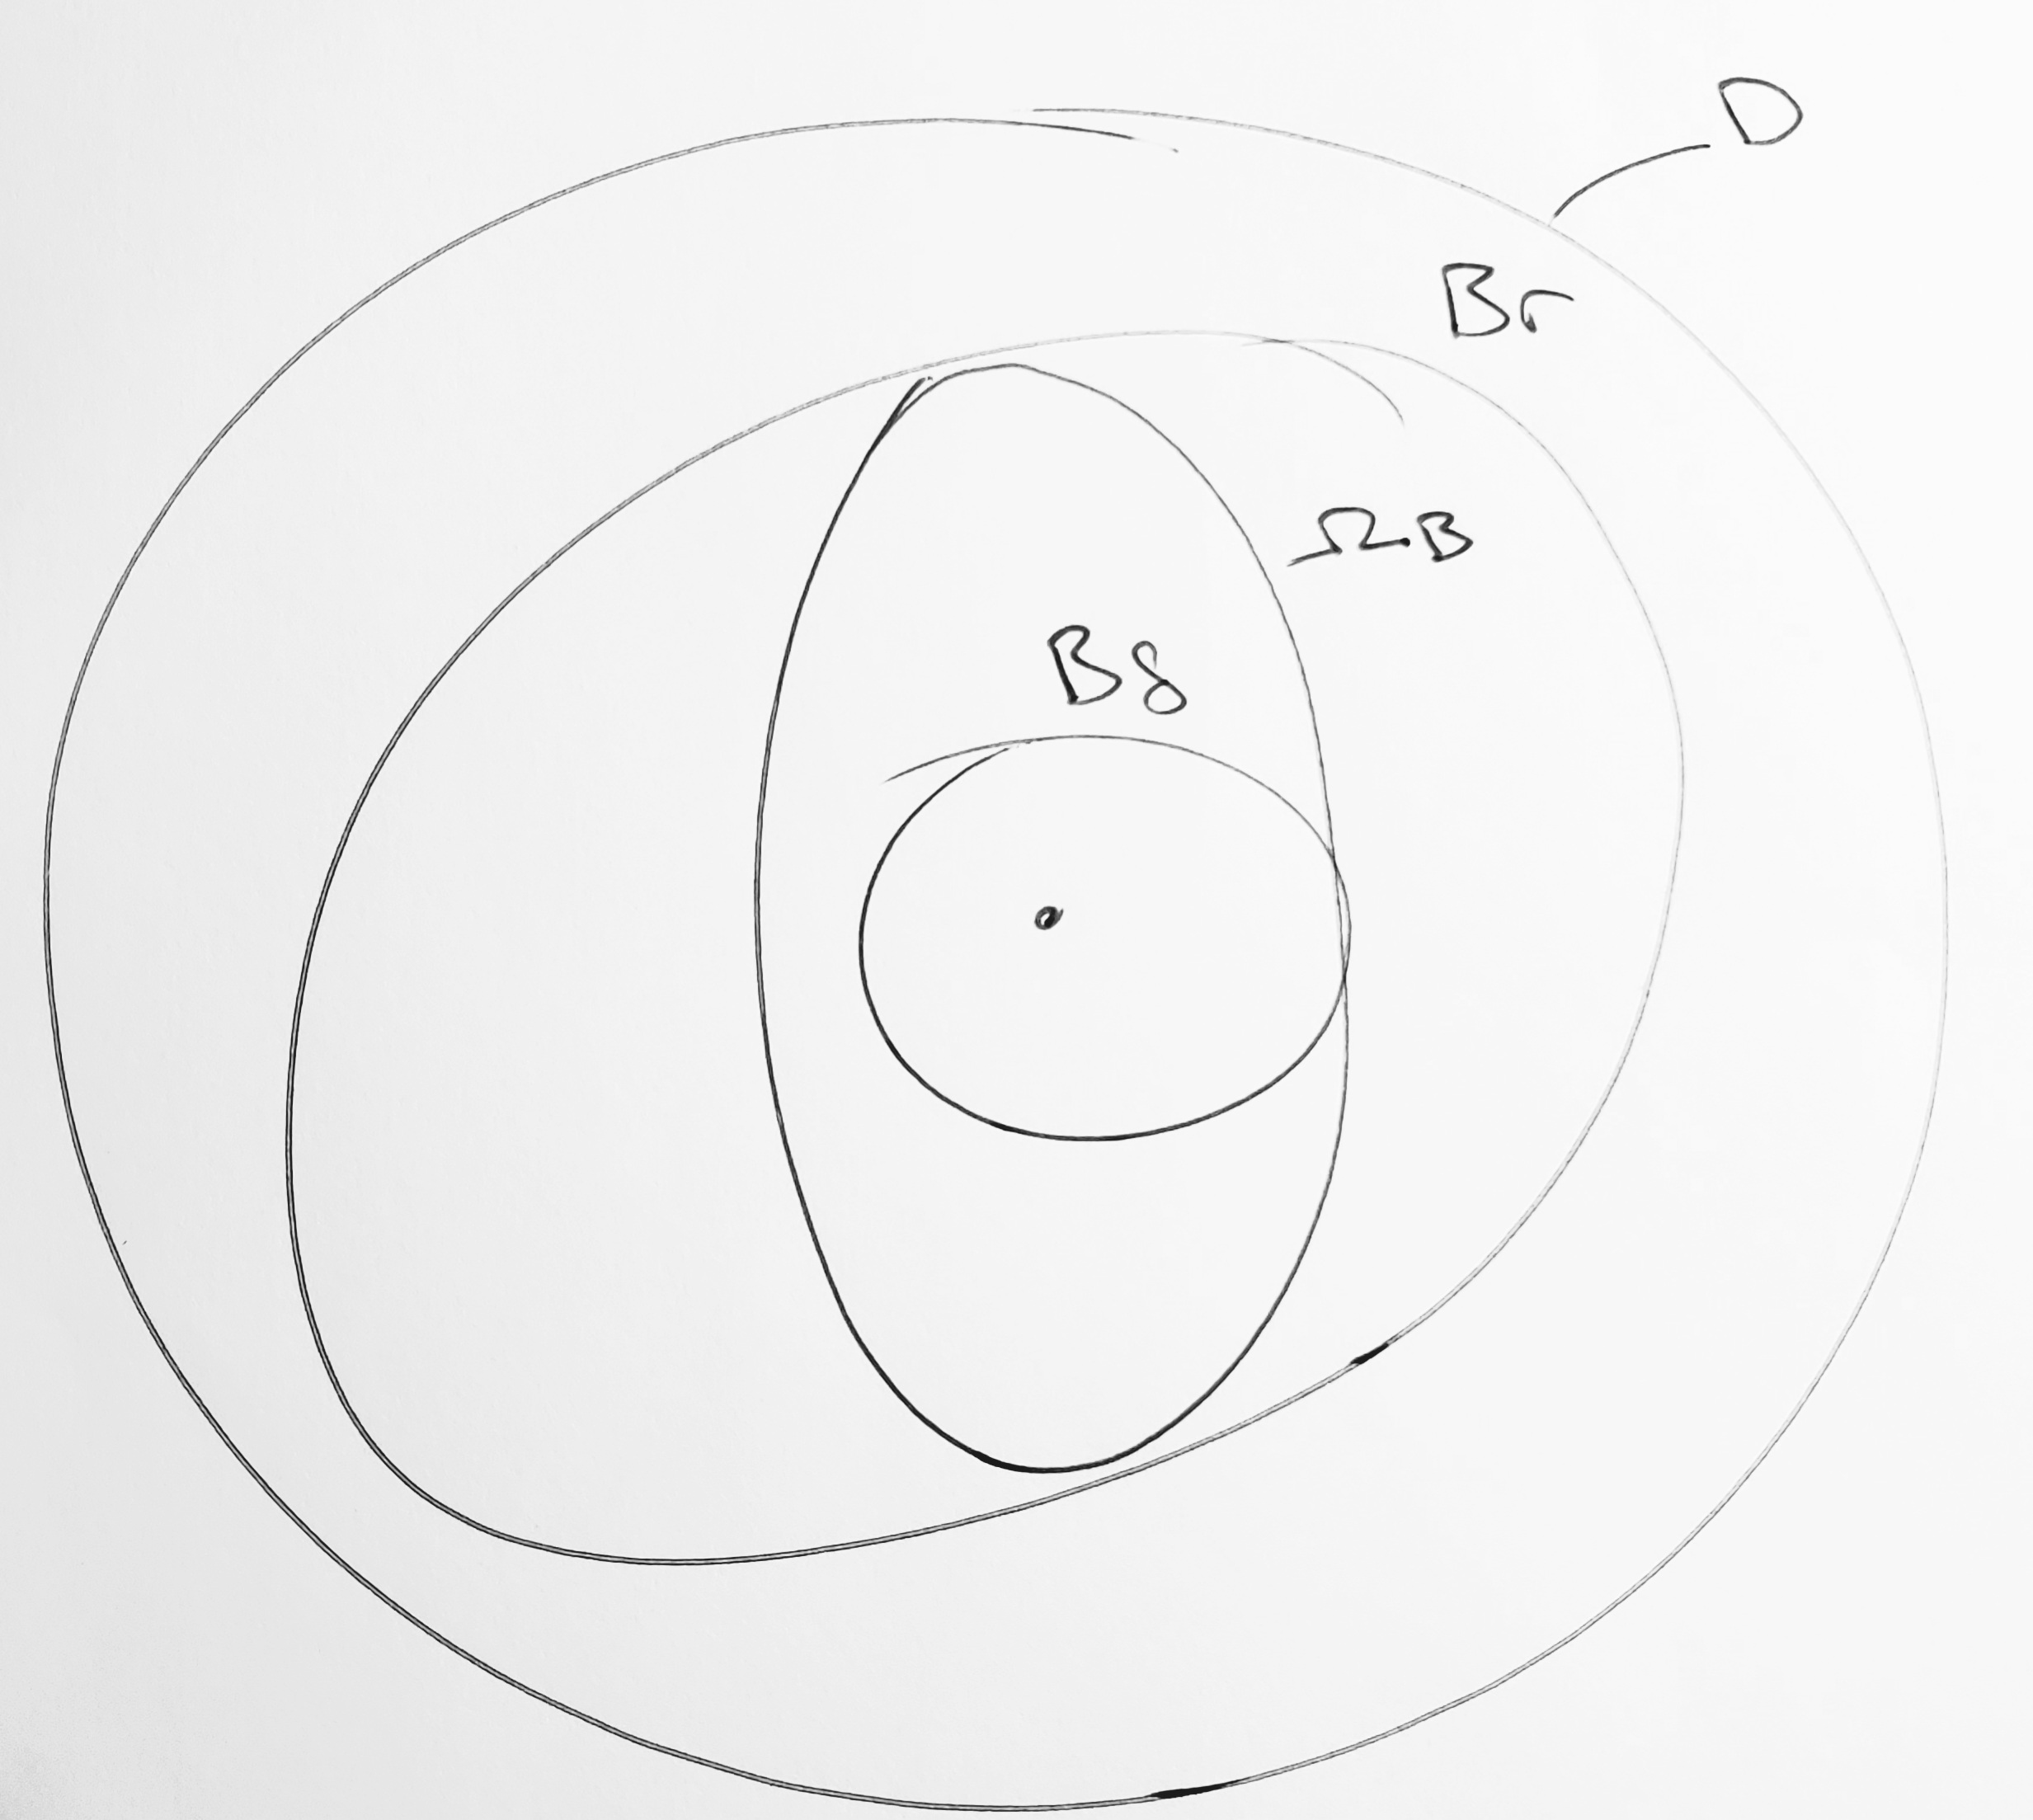 D
Br
Ω_B
Bδ